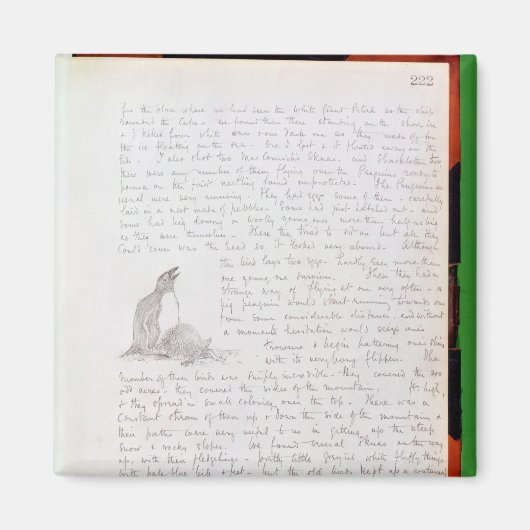 222
for the place where we had seen the White Giant Petrels as the ship
rounded the Cape - we found them there standing on the shore, ice
& I killed four white ones & one dark one as they made off for
the ice floating on the sea. One I lost as it floated away on the
tide - I also shot two MacCormick's Skuas - and Shackleton two,
there were any number of them flying over the Penguins ready to
pounce on the first nestling found unprotected. The Penguins as
usual were very amusing. They had eggs some of them, carefully
laid in a nest made of pebbles. Some had just hatched out - and
some had big downy & woolly young ones more than half as big
as they were themselves - These they tried to sit on but all they
could cover was the head so it looked very absurd - Although
the bird lays two eggs - hardly ever more than
one young one survives. Then they had a
strange way of flying at one very often - a
big penguin would start running towards one
from some considerable distance, and without
a moments hesitation would seize one's
trousers & begin battering one's shins
with its very bony flipper. The
number of these birds was simply incredible - they covered the 200
odd acres - they covered the sides of the mountain, ft high,
& they spread in small colonies over the top - There was a
constant stream of them up & down the side of the mountain &
their paths were very useful to us in getting up the steep
snow & rocky slopes. We found several Skuas on the way
up, with their fledgelings - pretty little grayish white fluffy things
with pale blue bills & feet - but the old birds kept up a continual